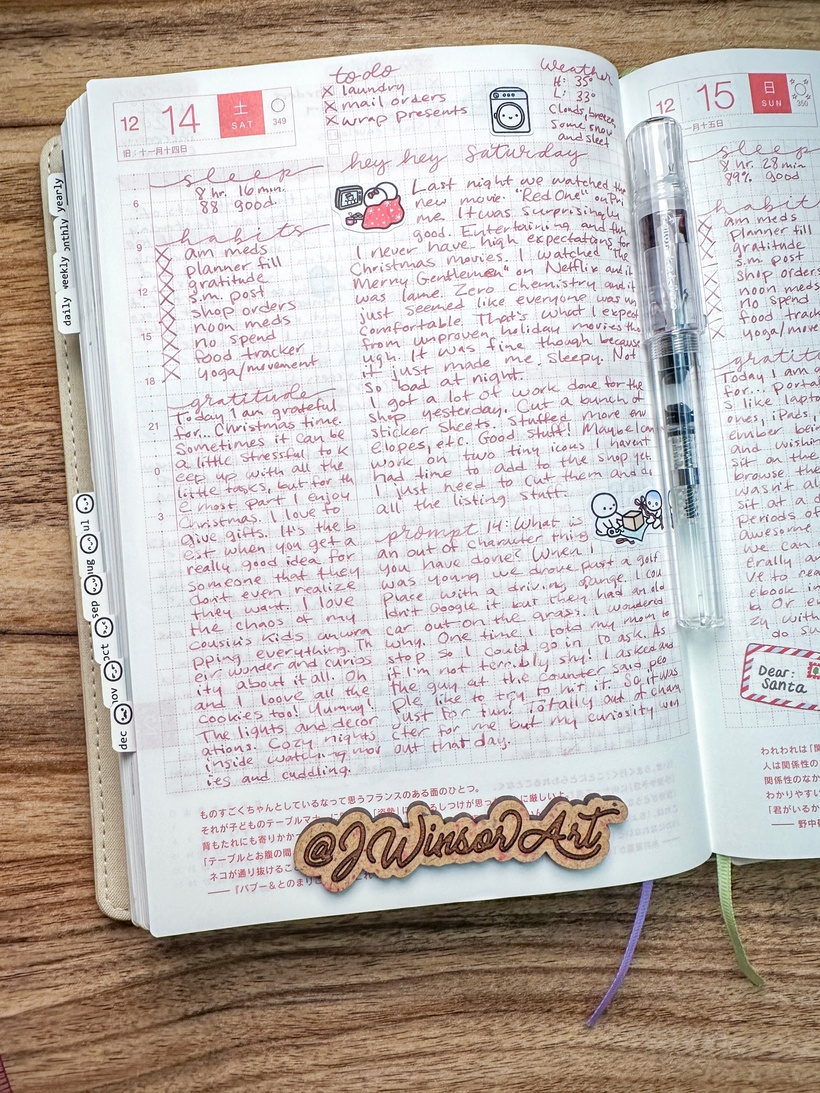 12 14 土 SAT 349
旧:十一月十四日
to do
X laundry
X mail orders
X wrap presents
Weather
H: 35°
L: 33°
Clouds, breeze
some snow
and sleet
sleep
8 hr. 16 min.
88 good
habits
am meds
planner fill
gratitude
s.m. post
shop orders
noon meds
no spend
food tracker
yoga/movement
gratitude
Today I am grateful
for... Christmas time.
Sometimes it can be
a little stressful to k
eep up with all the
little tasks, but for th
e most part I enjoy
Christmas. I love to
give gifts. It's the b
est when you get a
really good idea for
someone that they
don't even realize
they want. I love
the chaos of my
cousin's kids unwra
pping everything. Th
eir wonder and curios
ity about it all. Oh
and I loove all the
cookies too! Yummy!
The lights and decor
ations. Cozy nights
inside watching mov
ies and cuddling.
6
9
12
15
18
21
0
3
hey hey Saturday
Last night we watched the
new movie "Red One" on Pri
me. It was surprisingly
good. Entertaining and fun.
I never have high expectations for
Christmas movies. I watched "The
Merry Gentlemen" on Netflix and it
was lame. Zero chemistry and it
just seemed like everyone was un
comfortable. That's what I expect
from unproven holiday movies tho
ugh. It was fine though because
it just made me sleepy. Not
so bad at night.
I got a lot of work done for the
shop yesterday. Cut a bunch of
sticker sheets. Stuffed more env
elopes, etc. Good stuff! Maybe I can
work on two tiny icons I haven't
had time to add to the shop yet.
I just need to cut them and do
all the listing stuff.
prompt 14: What is
an out of character thing
you have done? When I
was young we drove past a golf
place with a driving range. I cou
ldn't Google it but they had an old
car out on the grass. I wondered
why. One time I told my mom to
stop so I could go in to ask. As
if I'm not terribly shy! I asked and
the guy at the counter said peo
ple like to try to hit it. So it was
just for fun! Totally out of chara
cter for me but my curiosity won
out that day.
ものすごくちゃんとしているなって思うフランスのある面のひとつ。
それが子どものテーブルマナー
背もたれにも寄りかか
「テーブルとお腹の間
ネコが通り抜けるこ
――『パブー&とのまりこ
@JWinsorArt
daily weekly monthly yearly
jul
aug
sep
oct
nov
dec
12 15 日 SUN 350
十一月十五日
sleep
8 hr. 28 min
89% good
habit
am meds
planner fill
gratitude
s.m. post
shop orders
noon meds
no spend
food track
yoga/move
gratit
Today I am g
for... porta
s like lapto
ones, iPads,
ember bein
and wishin
sit on the
browse the
wasn't al
sit at a d
periods of
awesome
we can
erally an
ve to rea
ebook in
zy with
do su
Dear:
Santa
われわれは「関
人は関係性の
関係性のなか
わかりやすい
「君がいるか
―― 野中